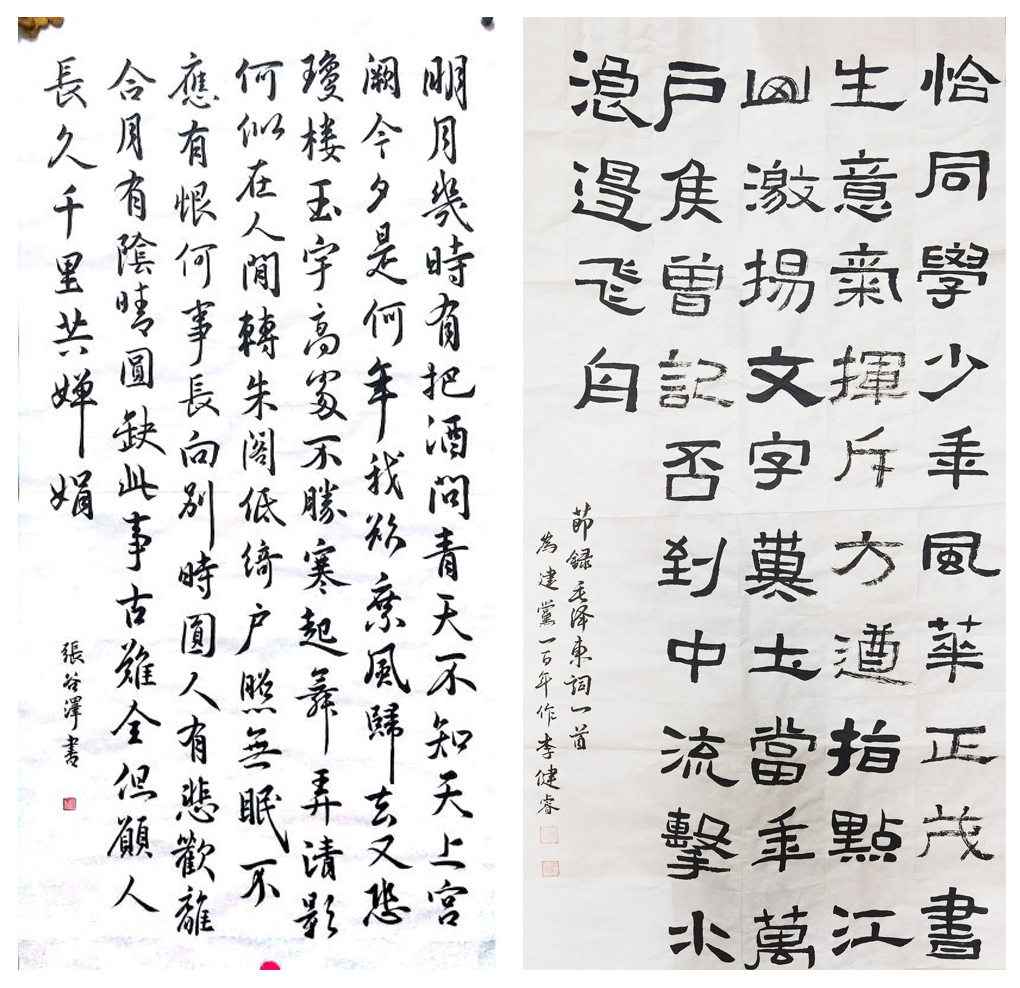 明月幾時有把酒問青天不知天上宮
闕今夕是何年我欲乘風歸去又恐
瓊樓玉宇高處不勝寒起舞弄清影
何似在人間轉朱閣低綺户照無眠不
應有恨何事長向别時圓人有悲歡離
合月有陰晴圓缺此事古難全但願人
長久千里共嬋娟
張谷澤書
恰同學少年風華正茂書
生意氣揮斥方遒指點江
山激揚文字糞土當年萬
户侯曾記否到中流擊水
浪遏飞舟
節録毛泽東詞一首
為建黨一百年作李健睿